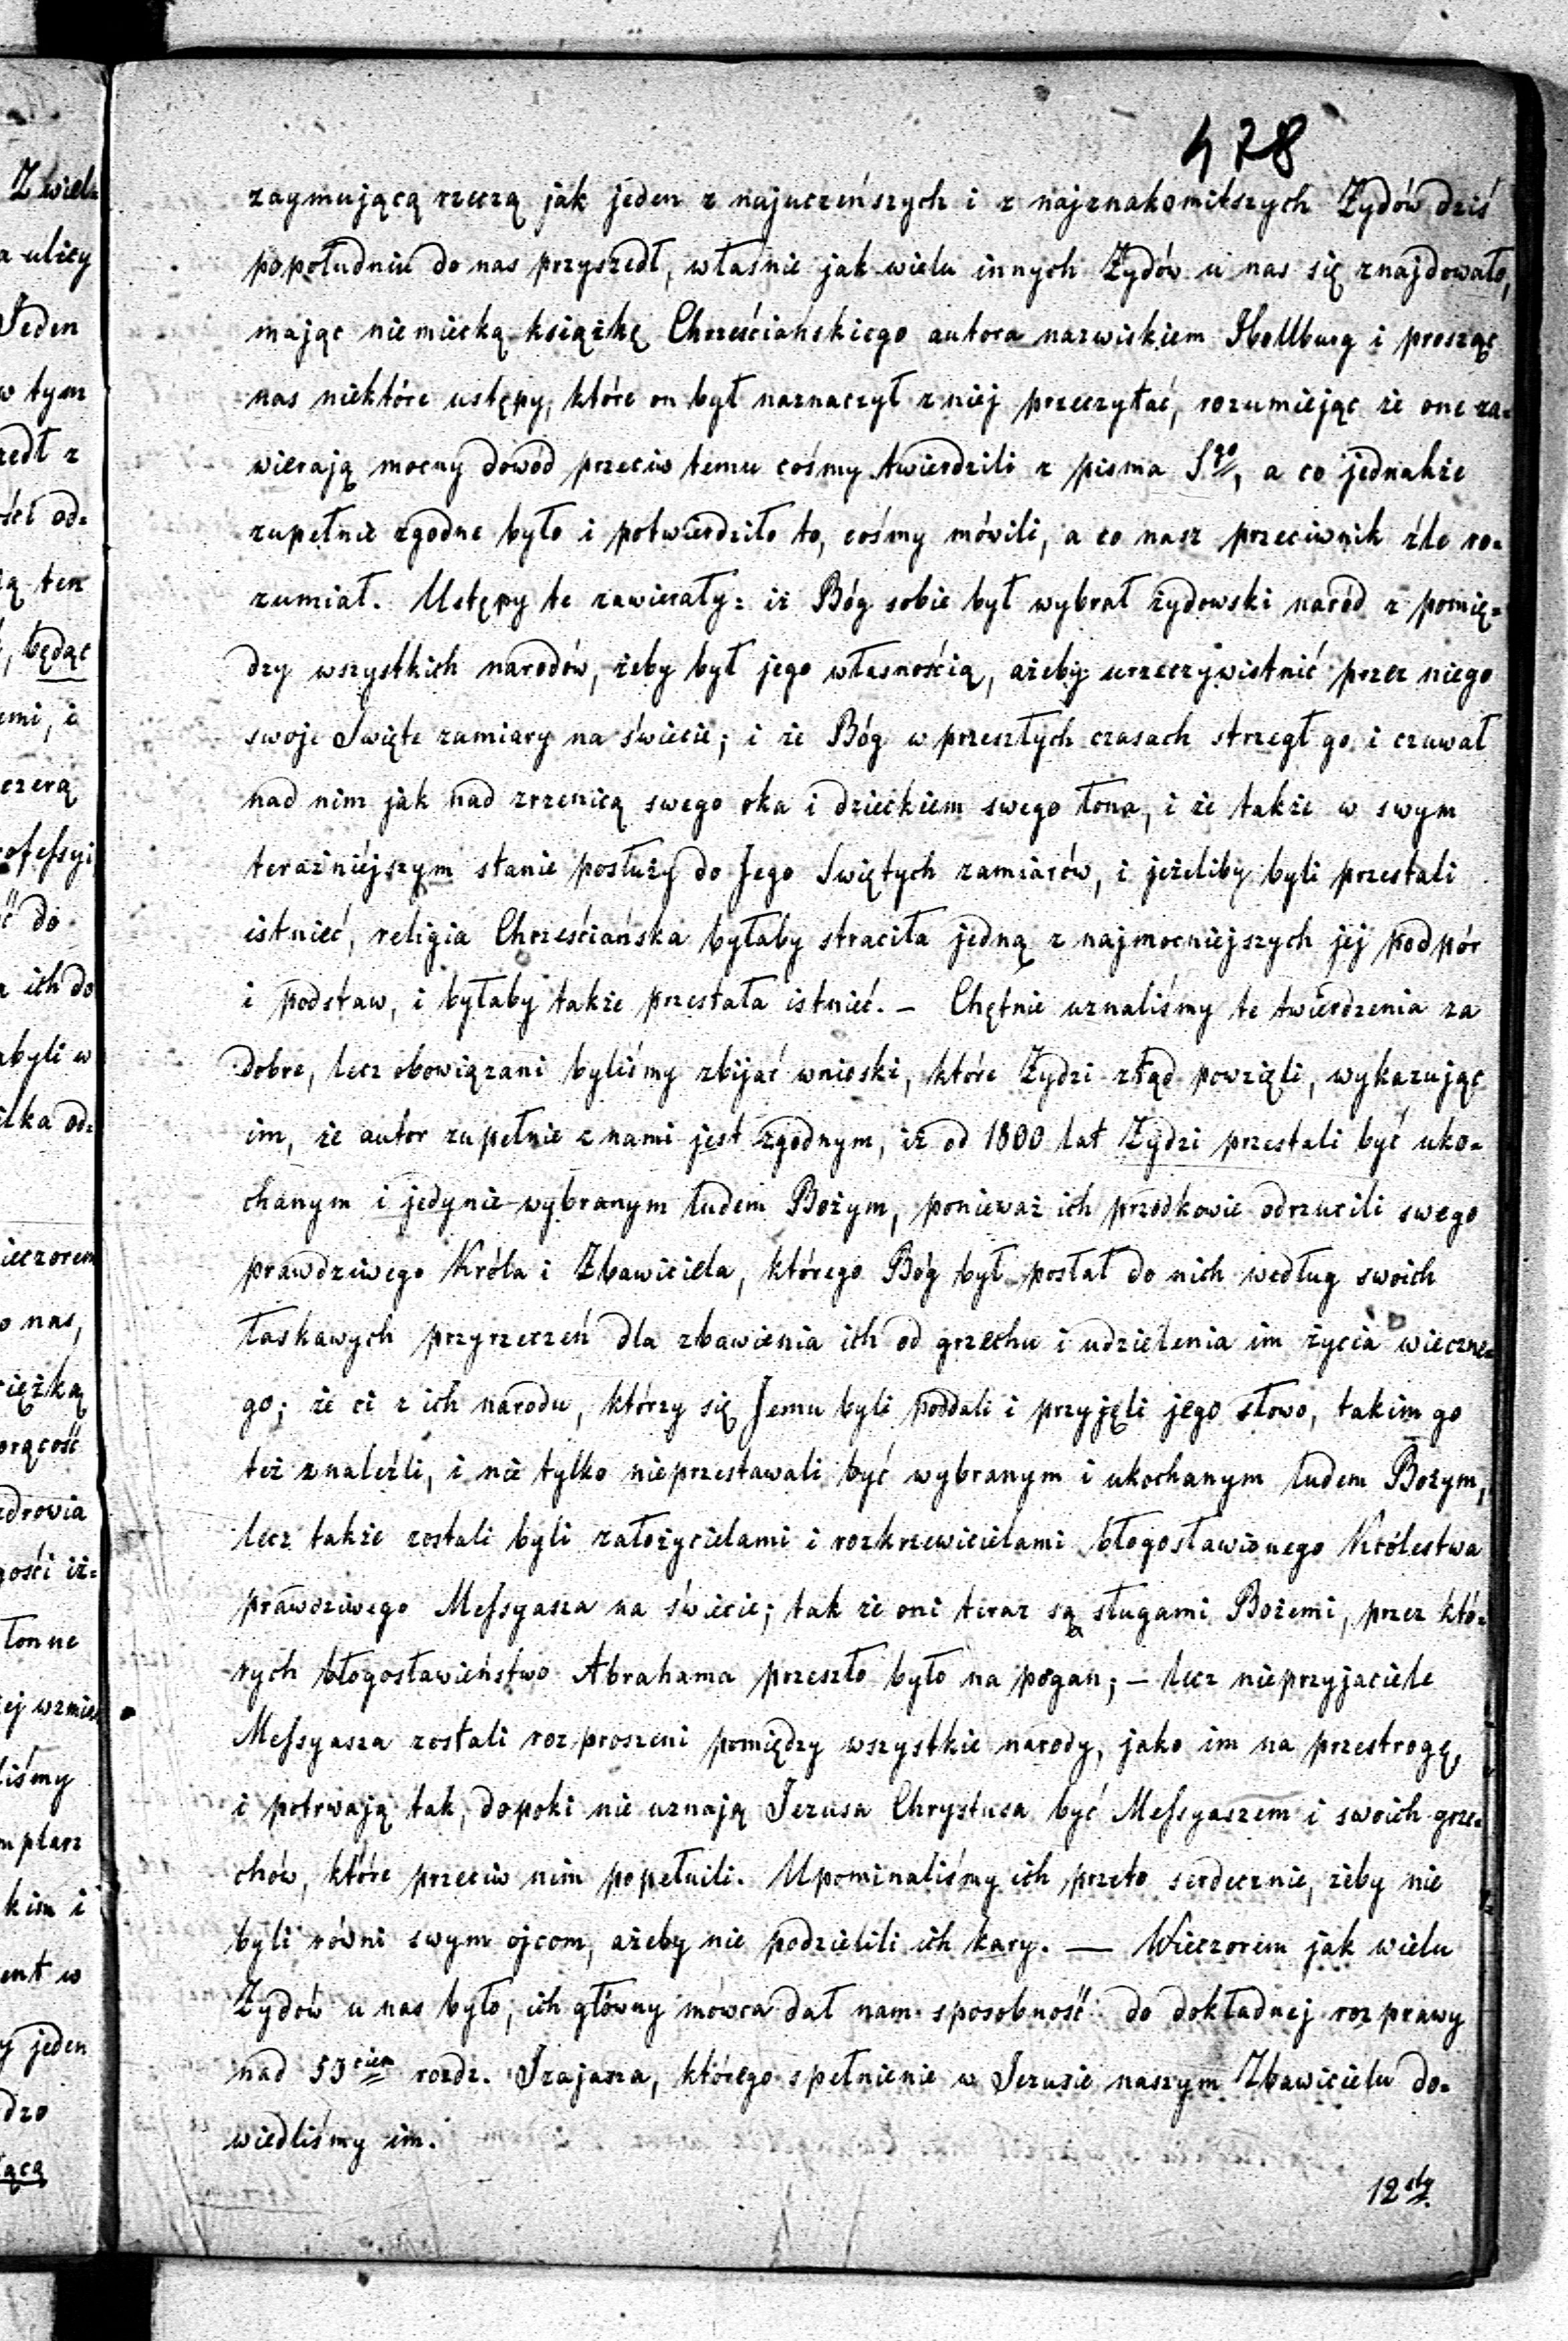 478
zaymującą rzeczą jak jeden z najuczeńszych i z najznakomitszych Żydów dziś
popołudniu do nas przyszedł, właśnie jak wielu innych Żydów u nas się znajdowało,
mając niemiecką książkę Chrześciańskiego autora nazwiskiem Hollburg i prosząc
nas niektóre ustępy, które on był naznaczył z niej przeczytać, rozumiejąc że one za-
wierają mocny dowód przeciw temu cośmy twierdzili z pisma Sgo, a co jednakże
zupełnie zgodne było i potwierdziło to, cośmy mówili, a co nasz przeciwnik źle ro-
zumiał. Ustępy te zawierały: iż Bóg sobie był wybrał żydowski naród z pomię-
dzy wszystkich narodów, żeby był jego własnością, ażeby urzeczywistnić przez niego
swoje Święte zamiary na świecie; i że Bóg w przeszłych czasach strzegł go i czuwał
nad nim jak nad zrzenicą swego oka i dzieckiem swego łona, i że także w swym
teraźniéjszym stanie posłuży do Jego Świętych zamiarów, i jeżeliby byli przestali
istnieć, religia Chrześciańska byłaby straciła jedną z najmocniejszych jej podpór
i podstaw, i byłaby także przestała istnieć. – Chętnie uznaliśmy te twierdzenia za
dobre, lecz obowiązani byliśmy zbijać wnioski, które Żydzi ztąd powzięli, wykazując
im, że autor zupełnie z nami jest zgodnym, iż od 1800 lat Żydzi przestali być uko-
chanym i jedynie wybranym ludem Bożym, ponieważ ich przodkowie odrzucili swego
prawdziwego Króla i Zbawiciela, którego Bóg był posłał do nich według swoich
łaskawych przyrzeczeń dla zbawienia ich od grzechu i udzielenia im życia wieczne-
go; że ci z ich narodu, którzy się Jemu byli poddali i przyjęli jego słowo, takim go
też znaleźli, i nie tylko nieprzestawali być wybranym i ukochanym ludem Bożym,
lecz także zostali byli założycielami i rozkrzewicielami błogosławionego Królestwa
prawdziwego Messyasza na świecie; tak że oni teraz są sługami Bożemi, przez któ-
rych błogosławieństwo Abrahama przeszło było na pogan; – lecz nieprzyjaciele
Messyasza zostali rozproszeni pomiędzy wszystkie narody, jako im na przestrogę,
i potrwają tak, dopoki nie uznają Jezusa Chrystusa być Messyaszem i swoich grze-
chów, które przeciw nim popełnili. Upominaliśmy ich przeto serdecznie, żeby nie
byli równi swym ojcom, ażeby nie podzielili ich kary. — Wieczorem jak wielu
Żydów u nas było, ich główny mówca dał nam sposobność do dokładnej rozprawy
nad 53ciem rozdz. Izajasza, którego spełnienie w Jezusie naszym Zbawicielu do-
wiedliśmy im.
12sty.
Z wielu
a ulicy
Jeden
w tym
ści od-
ą ten
, będąc
emi, i
czerą
ofessyi
ć do
ich do
byli w
ilka od-
ieczorem
o nas,
iężką
orącość
zdrowia
ości iż-
łonne
ej wzmie
liśmy
mplarz
kim i
ent w
y jeden
dzo
ącą